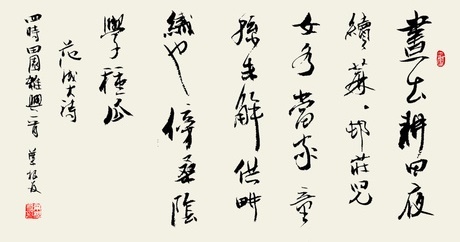 晝出耕田夜
績蔴邨莊兒
女各當家童
孫未解供畊
織也傍桑陰
學種瓜
范成大詩
四時田園雜興一首